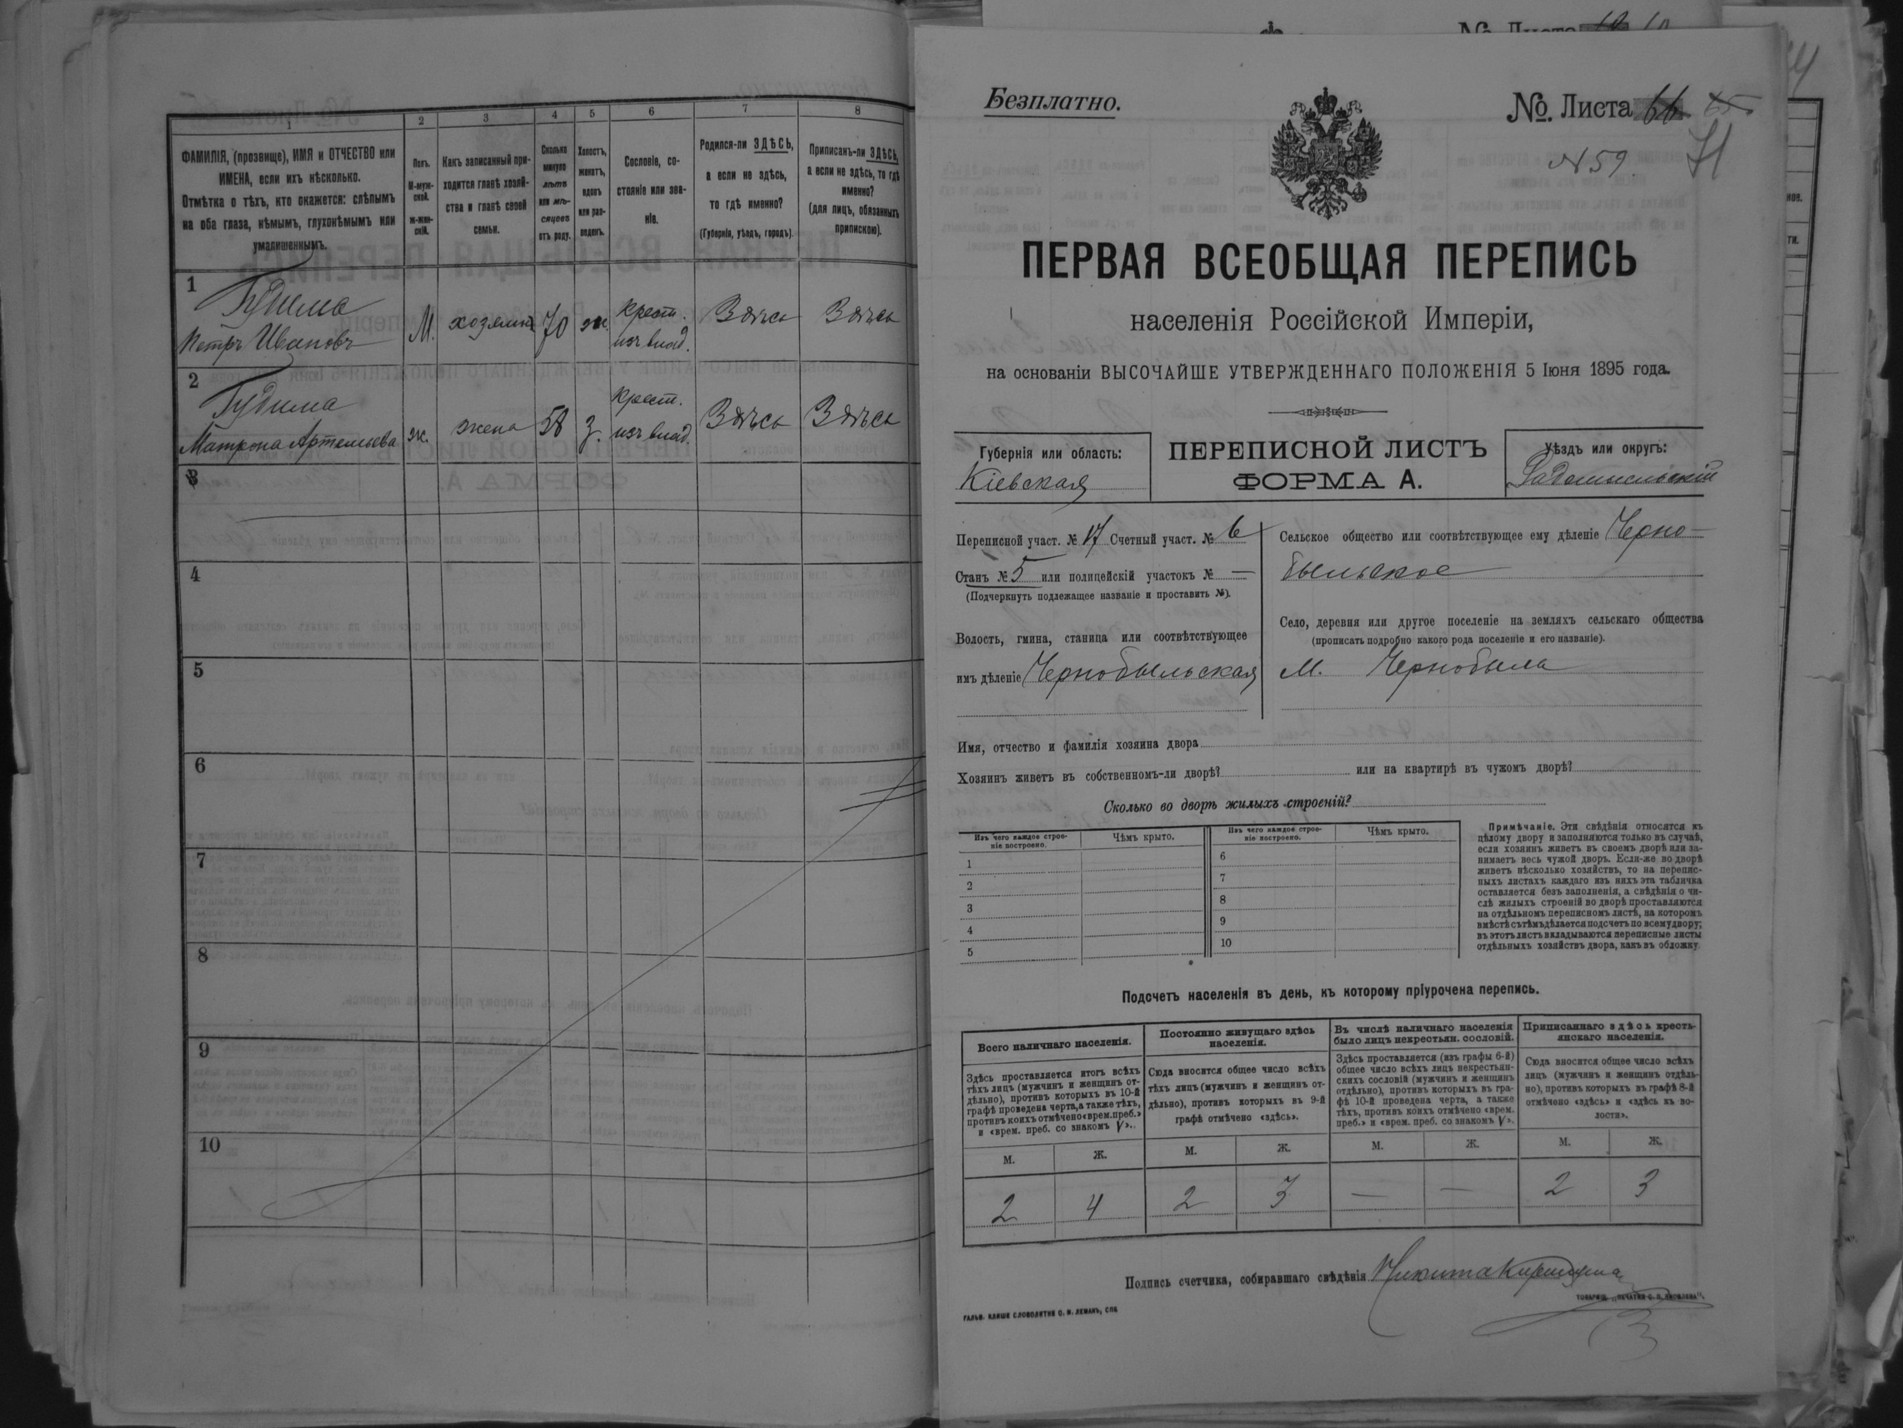 1
2
3
4
5
6
7
8
ФАМИЛІЯ, (прозвище), ИМЯ и ОТЧЕСТВО или
ИМЕНА, если ихъ нѣсколько.
Отмѣтка о тѣхъ, кто окажется: слѣпымъ
на оба глаза, нѣмымъ, глухонѣмымъ или
умалишеннымъ.
Полъ.
М-муж-
ской.
Ж-жен-
скій.
Какъ записанный при-
ходится главѣ хозяй-
ства и главѣ своей
семьи.
Сколько
минуло
лѣтъ
или мѣ-
сяцевъ
отъ роду.
Холостъ,
женатъ,
вдовъ
или раз-
веденъ.
Сословіе, со-
стояніе или зва-
ніе.
Родился-ли ЗДѢСЬ,
а если не здѣсь,
то гдѣ именно?
(Губернія, уѣздъ, городъ).
Приписанъ-ли ЗДѢСЬ,
а если не здѣсь, то гдѣ
именно?
(для лицъ, обязанныхъ
припискою).
1
Гудима
Петръ Ивановъ
М.
хозяинъ
70
ж.
крест.
изъ влад.
Здѣсь
Здѣсь
2
Гудима
Матрона Артемьева
ж.
жена
58
з.
крест.
изъ влад.
Здѣсь
Здѣсь
3
4
5
6
7
8
9
10
Безплатно.
No. Листа 66 65
N 59
71
ПЕРВАЯ ВСЕОБЩАЯ ПЕРЕПИСЬ
населенія Россійской Имперіи,
на основаніи ВЫСОЧАЙШЕ УТВЕРЖДЕННАГО ПОЛОЖЕНІЯ 5 Іюня 1895 года.
Губернія или область:
Кіевская
ПЕРЕПИСНОЙ ЛИСТЪ
ФОРМА А.
Уѣздъ или округъ:
Радомысльскій
Переписной участ. № 17 Счетный участ. № 6
Станъ № 5 или полицейскій участокъ № —
(Подчеркнуть подлежащее названіе и проставить №).
Волость, гмина, станица или соотвѣтствующее
имъ дѣленіе Чернобыльская
Сельское общество или соотвѣтствующее ему дѣленіе Черно-
быльское
Село, деревня или другое поселеніе на земляхъ сельскаго общества
(прописать подробно какого рода поселеніе и его названіе).
М. Чернобыль
Имя, отчество и фамилія хозяина двора
Хозяинъ живетъ въ собственномъ-ли дворѣ? или на квартирѣ въ чужомъ дворѣ?
Сколько во дворѣ жилыхъ строеній?
Изъ чего каждое строе-
ніе построено.
Чѣмъ крыто.
Изъ чего каждое строе-
ніе построено.
Чѣмъ крыто.
1
2
3
4
5
6
7
8
9
10
Примѣчаніе. Эти свѣдѣнія относятся къ
цѣлому двору и заполняются только въ случаѣ,
если хозяинъ живетъ въ своемъ дворѣ или за-
нимаетъ весь чужой дворъ. Если-же во дворѣ
живетъ нѣсколько хозяйствъ, то на перепис-
ныхъ листахъ каждаго изъ нихъ эта табличка
оставляется безъ заполненія, а свѣдѣнія о чи-
слѣ жилыхъ строеній во дворѣ проставляются
на отдѣльномъ переписномъ листѣ, на которомъ
вмѣстѣ съ тѣмъ дѣлается подсчетъ по всему двору;
въ этотъ листъ вкладываются переписные листы
отдѣльныхъ хозяйствъ двора, какъ въ обложку.
Подсчетъ населенія въ день, къ которому пріурочена перепись.
Всего наличнаго населенія.
Здѣсь проставляется итогъ всѣхъ
тѣхъ лицъ (мужчинъ и женщинъ от-
дѣльно), противъ которыхъ въ 10-й
графѣ проведена черта, а также тѣхъ,
противъ коихъ отмѣчено «врем. преб.»
и «врем. преб. со знакомъ V».
Постоянно живущаго здѣсь
населенія.
Сюда вносится общее число всѣхъ
тѣхъ лицъ (мужчинъ и женщинъ от-
дѣльно), противъ которыхъ въ 9-й
графѣ отмѣчено «здѣсь».
Въ числѣ наличнаго населенія
было лицъ некрестьян. сословій.
Здѣсь проставляется (изъ графы 6-й)
общее число всѣхъ лицъ некрестьян-
скихъ сословій (мужчинъ и женщинъ
отдѣльно), противъ которыхъ въ гра-
фѣ 10-й проведена черта, а также
тѣхъ, противъ коихъ отмѣчено «врем.
преб.» и «врем. преб. со знакомъ V».
Приписаннаго здѣсь кресть-
янскаго населенія.
Сюда вносится общее число всѣхъ
лицъ (мужчинъ и женщинъ отдѣль-
но), противъ которыхъ въ графѣ 8-й
отмѣчено «здѣсь» и «здѣсь къ во-
лости».
М. Ж. М. Ж. М. Ж. М. Ж.
2 4 2 3 — — 2 3
Подпись счетчика, собиравшаго свѣдѣнія Никита
ГАЛЬВ. КЛИШЕ СЛОВОЛИТНИ О. И. ЛЕМАНЪ, СПБ.
ТОВАРИЩ. „ПЕЧАТНЯ С. П. ЯКОВЛЕВА“.